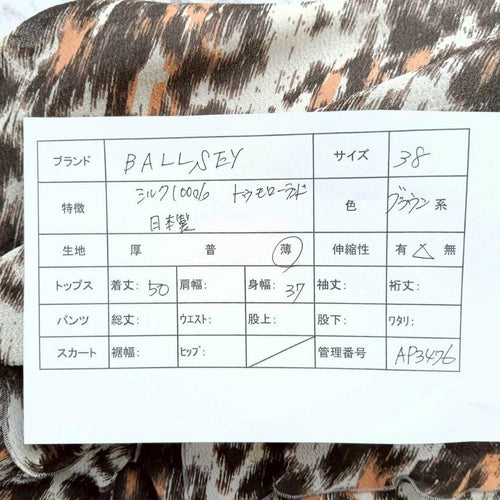 ブランド BALLSEY サイズ 38
特徴 シルク100% トゥモローランド 色 ブラウン系
日本製
生地 厚 普 薄 伸縮性 有 △ 無
トップス 着丈: 50 肩幅: 身幅: 37 袖丈: 裄丈:
パンツ 総丈: ウエスト: 股上: 股下: ワタリ:
スカート 裾幅: ヒップ: 管理番号 AP3476